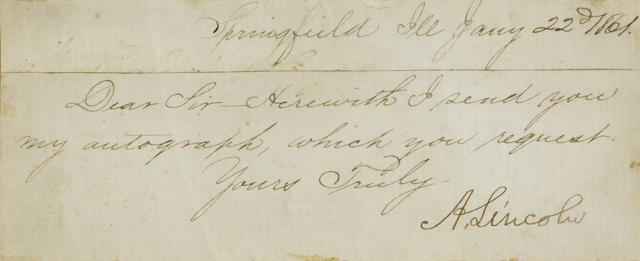 Springfield Ill Jany 22d 1861.
Dear Sir - Herewith I send you
my autograph, which you request.
Yours Truly
A. Lincoln